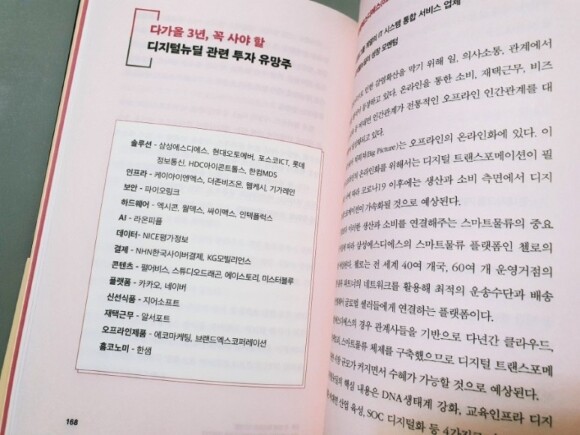 다가올 3년, 꼭 사야 할
디지털뉴딜 관련 투자 유망주
솔루션 - 삼성에스디에스, 현대오토에버, 포스코ICT, 롯데
정보통신, HDC아이콘트롤스, 한컴MDS
인프라 - 케이아이엔엑스, 더존비즈온, 웹케시, 가기레인
보안 - 파이오링크
하드웨어 - 엑시콘, 월덱스, 싸이맥스, 인텍플러스
AI - 라온피플
데이터 - NICE평가정보
결제 - NHN한국사이버결제, KG모빌리언스
콘텐츠 - 펄어비스, 스튜디오드래곤, 에이스토리, 미스터블루
플랫폼 - 카카오, 네이버
신선식품 - 지어소프트
재택근무 - 알서포트
오프라인제품 - 에코마케팅, 브랜드엑스코퍼레이션
홈코노미 - 한샘
168
IT 시스템 통합 서비스 업체
성장 모멘텀
인한 감염확산을 막기 위해 일, 의사소통, 관계에서
있다. 온라인을 통한 소비, 재택근무, 비즈
인간관계가 전통적인 오프라인 인간관계를 대
있다.
(Big Picture)는 오프라인의 온라인화에 있다. 이
온라인화를 위해서는 디지털 트랜스포메이션이 필
따라 코로나19 이후에는 생산과 소비 측면에서 디지
가속화될 것으로 예상된다.
이러한 생산과 소비를 연결해주는 스마트물류의 중요
따라 삼성에스디에스의 스마트물류 플랫폼인 첼로의
첼로는 전 세계 40여 개국, 60여 개 운영거점의
파트너의 네트워크를 활용해 최적의 운송수단과 배송
글로벌 셀러들에게 연결하는 플랫폼이다.
경우 관계사들을 기반으로 다년간 클라우드,
스마트물류 체제를 구축했으므로 디지털 트랜스포메
규모가 커지면서 수혜가 가능할 것으로 예상된다.
핵심 내용은 DNA생태계 강화, 교육인프라 디지
산업 육성, SOC 디지털화 등 4가지로